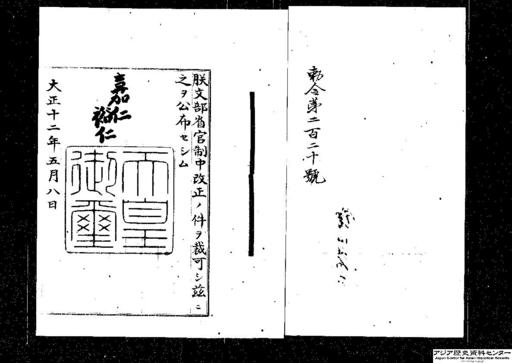 勅令第二百二十號
朕文部省官制中改正ノ件ヲ裁可シ茲ニ
之ヲ公布セシム
嘉仁
裕仁
天皇
御璽
大正十二年五月八日
アジア歴史資料センター
Japan Center for Asian Historical Records